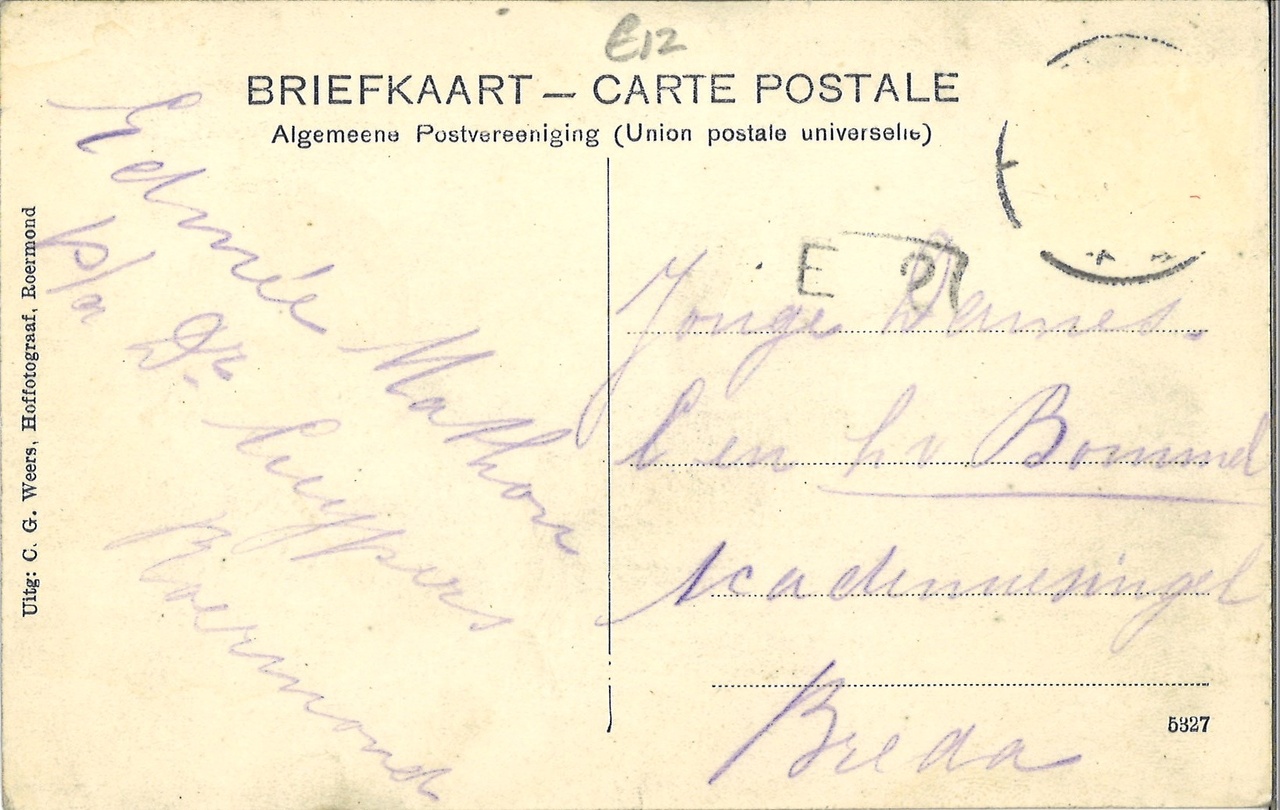 E12
BRIEFKAART — CARTE POSTALE
Algemeene Postvereeniging (Union postale universelle)
Uitg: C. G. Weers, Hoffotograaf, Roermond
Edmée Mathon
p/a Dr. Cuypers
Roermond
E
Jonge Dames
C en h v Bommel
Academiesingel
Breda
5327